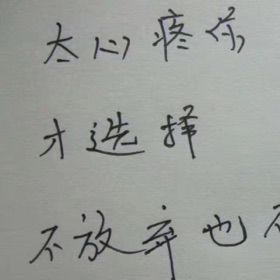 太心疼你
才选择
不放弃也不